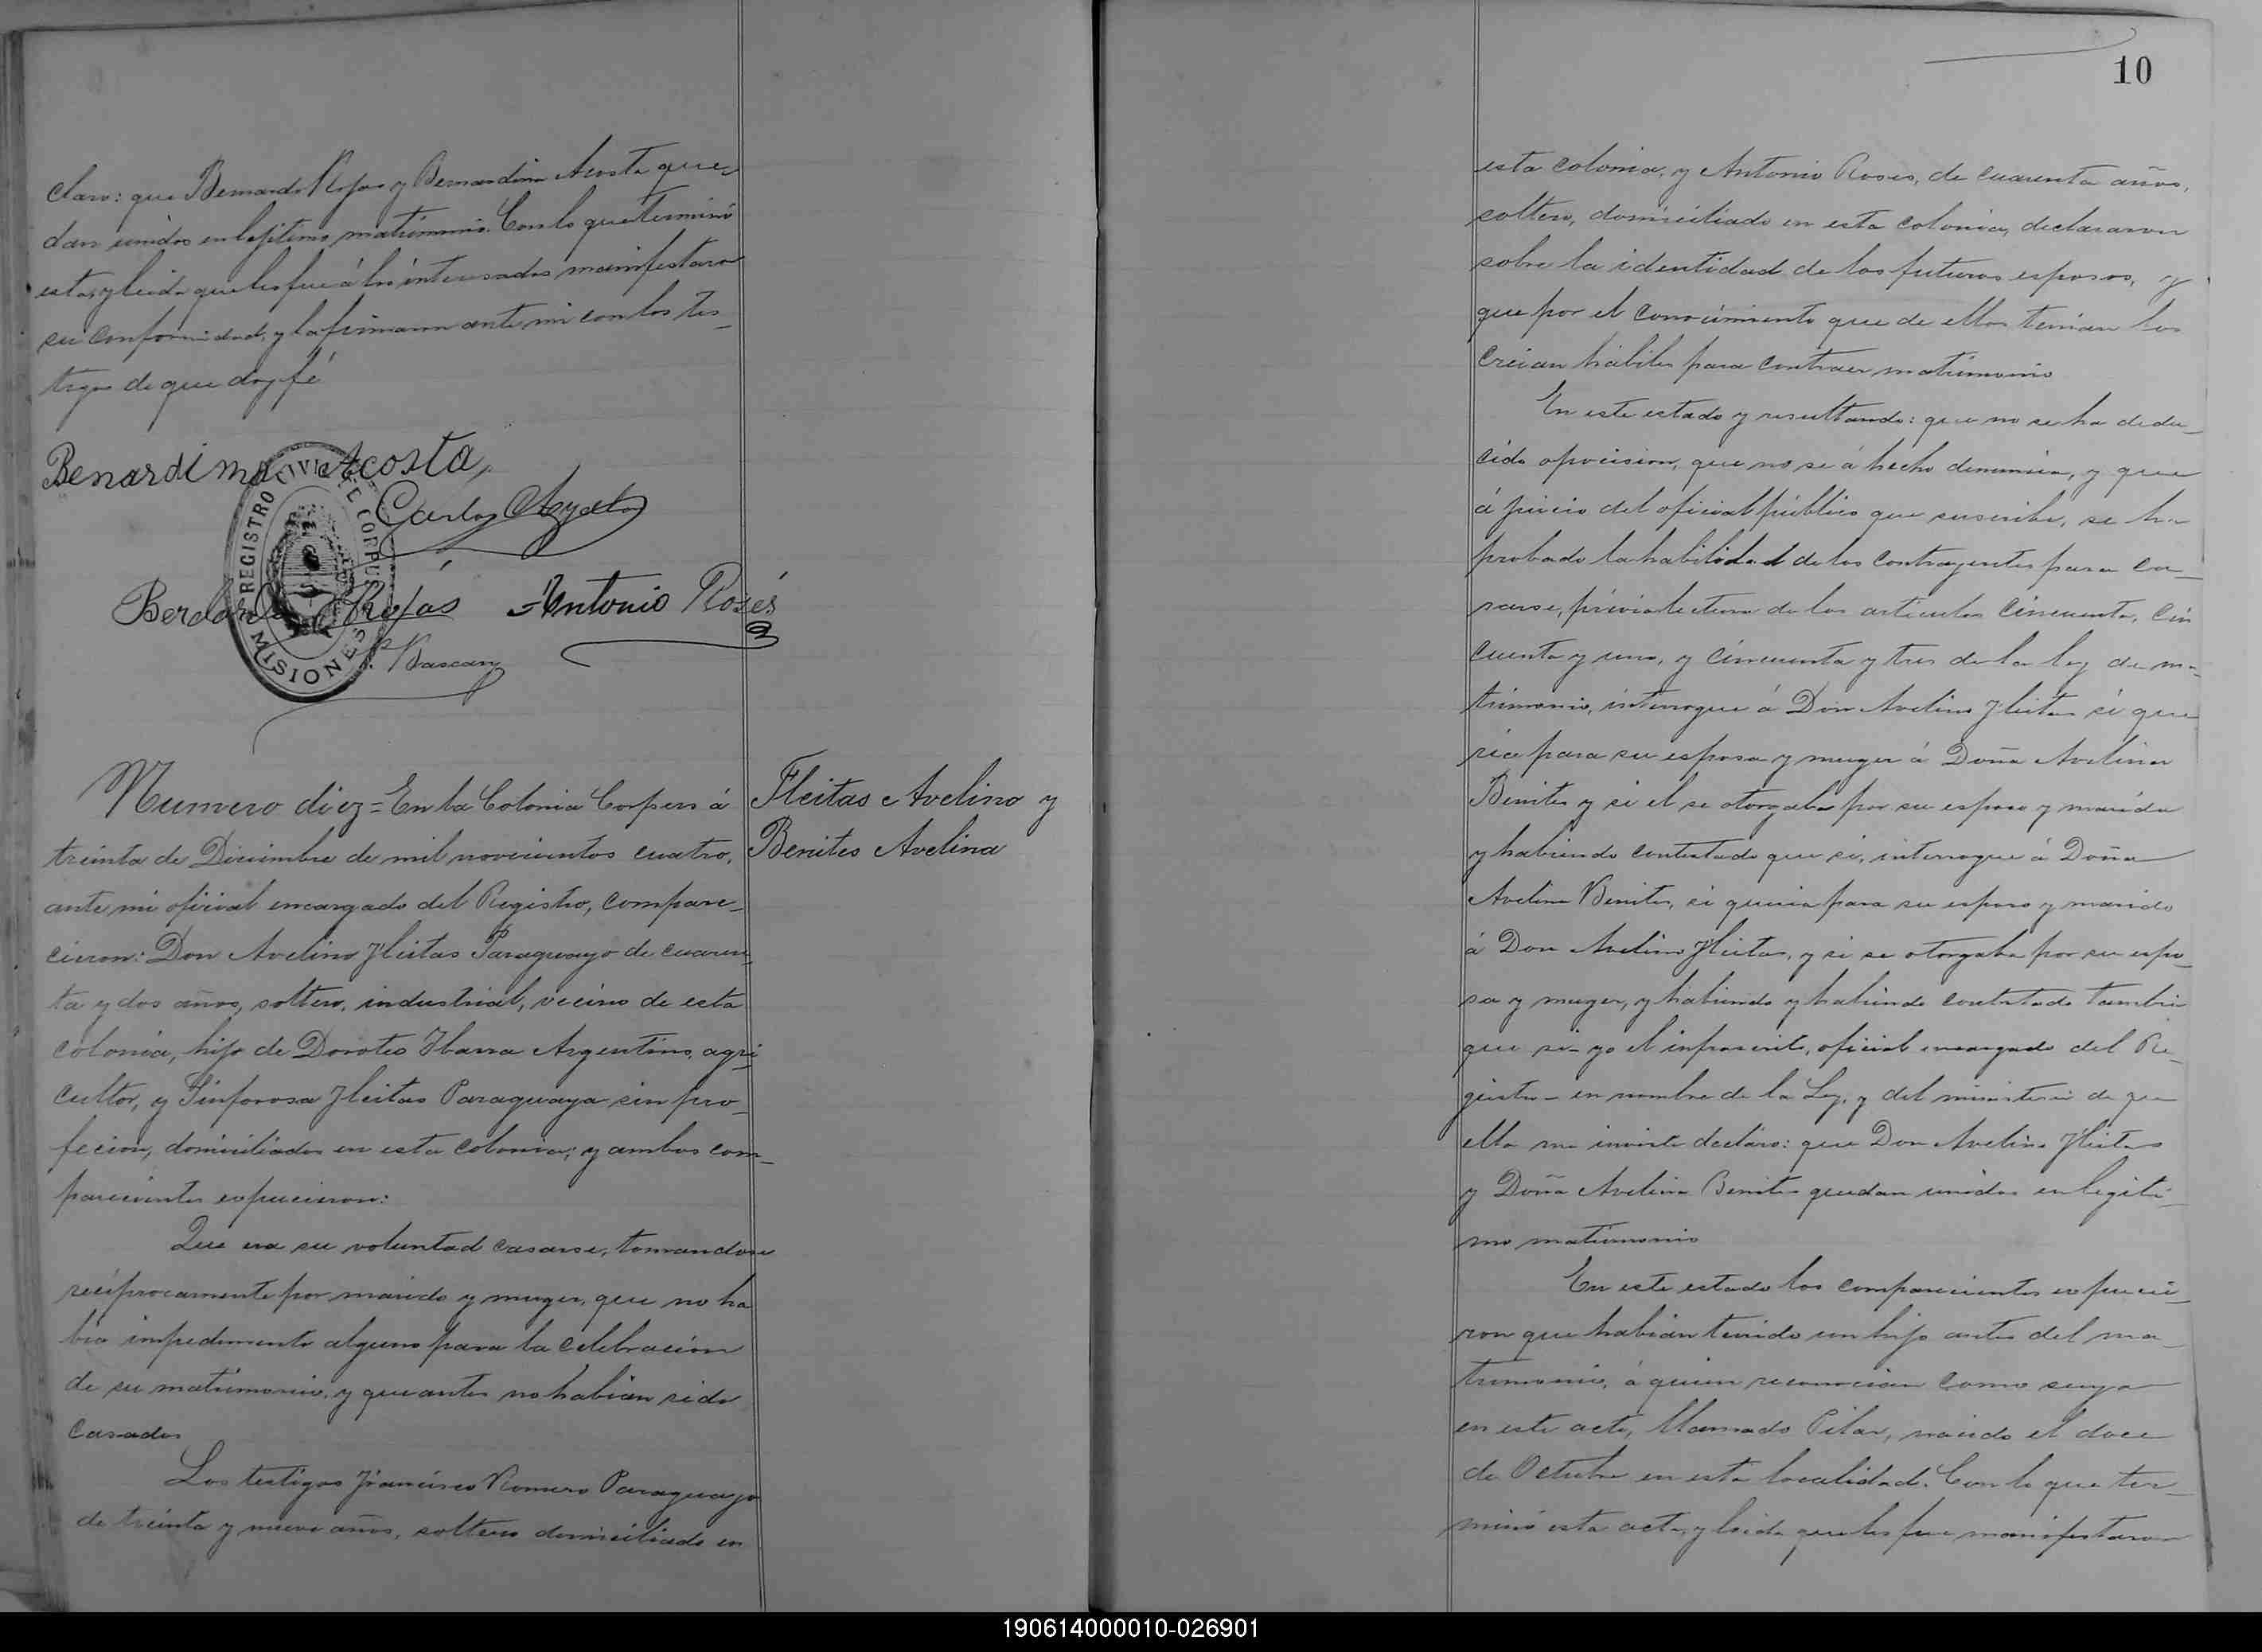 claro: que Bernardo Rojas y Bernardina Acosta que-
dan unidos en lejitimo matrimonio. Con lo que terminó
esta, y leida que les fue á los interesados manifestaron
su conformidad, y la firmaron ante mi con los tes-
tigos de que doy fé
Benardima Acosta
Carlos Ayala
Berdardo Rojás Antonio Rosés
REGISTRO CIVIL DE CORPUS
MISIONES
Numero diez = En la Colonia Corpus á
treinta de Diciembre de mil novecientos cuatro,
ante mi oficial encargado del Registro, compare-
cieron: Don Avelino Fleitas Paraguayo de cuaren-
ta y dos años, soltero, industrial, vecino de esta
colonia, hijo de Doroteo Ibarra Argentino, agri-
cultor, y Sinforosa Fleitas Paraguaya sin pro-
fecion, domiciliados en esta colonia; y ambos com-
parecientes expucieron:
Que era su voluntad casarse, tomandose
reciprocamente por marido y muger, que no ha
bia impedimento alguno para la celebracion
de su matrimonio, y que antes no habian sido
casados
Los testigos Francisco Romero Paraguayo
de treinta y nueve años, soltero domiciliado en
Fleitas Avelino y
Benites Avelina
10
esta colonia, y Antonio Roses, de cuarenta años,
soltero, domiciliado en esta colonia, declararon
sobre la identidad de los futuros esposos, y
que por el conocimiento que de ellos tenian los
creian habiles para contraer matrimonio
En este estado y resultando: que no se ha dedu-
cido oposicion, que no se á hecho denuncia, y que
á juicio del oficial público que suscribe, se ha
probado la habilidad de los contrayentes para ca-
sarse, prévia lectura de los articulos cincuenta, cin
cuenta y uno, y cincuenta y tres de la ley de ma-
trimonio, interrogue á Don Avelino Fleitas si que
ria para su esposa y muger á Doña Avelina
Benites y si el se otorgaba por su esposo y marido
y habiendo contestado que si, interrogue á Doña
Avelina Benites, si queria para su esposo y marido
á Don Avelino Fleitas, y si se otorgaba por su espo-
sa y muger, y habiendo y habiendo contestado tambien
que si - yo el infrascrito, oficial encargado del Re-
gistro - en nombre de la Ley, y del ministerio de que
ella me inviste declaro: que Don Avelino Fleitas
y Doña Avelina Benites quedan unidos en legiti-
mo matrimonio
En este estado los comparecientes expucie-
ron que habian tenido un hijo antes del ma-
trimonio, á quien reconocian como suyo
en este acto, llamado Pilar, nacido el doce
de Octubre en esta localidad. Con lo que ter-
minó esta acta, y leida que les fue manifestaron
190614000010-026901